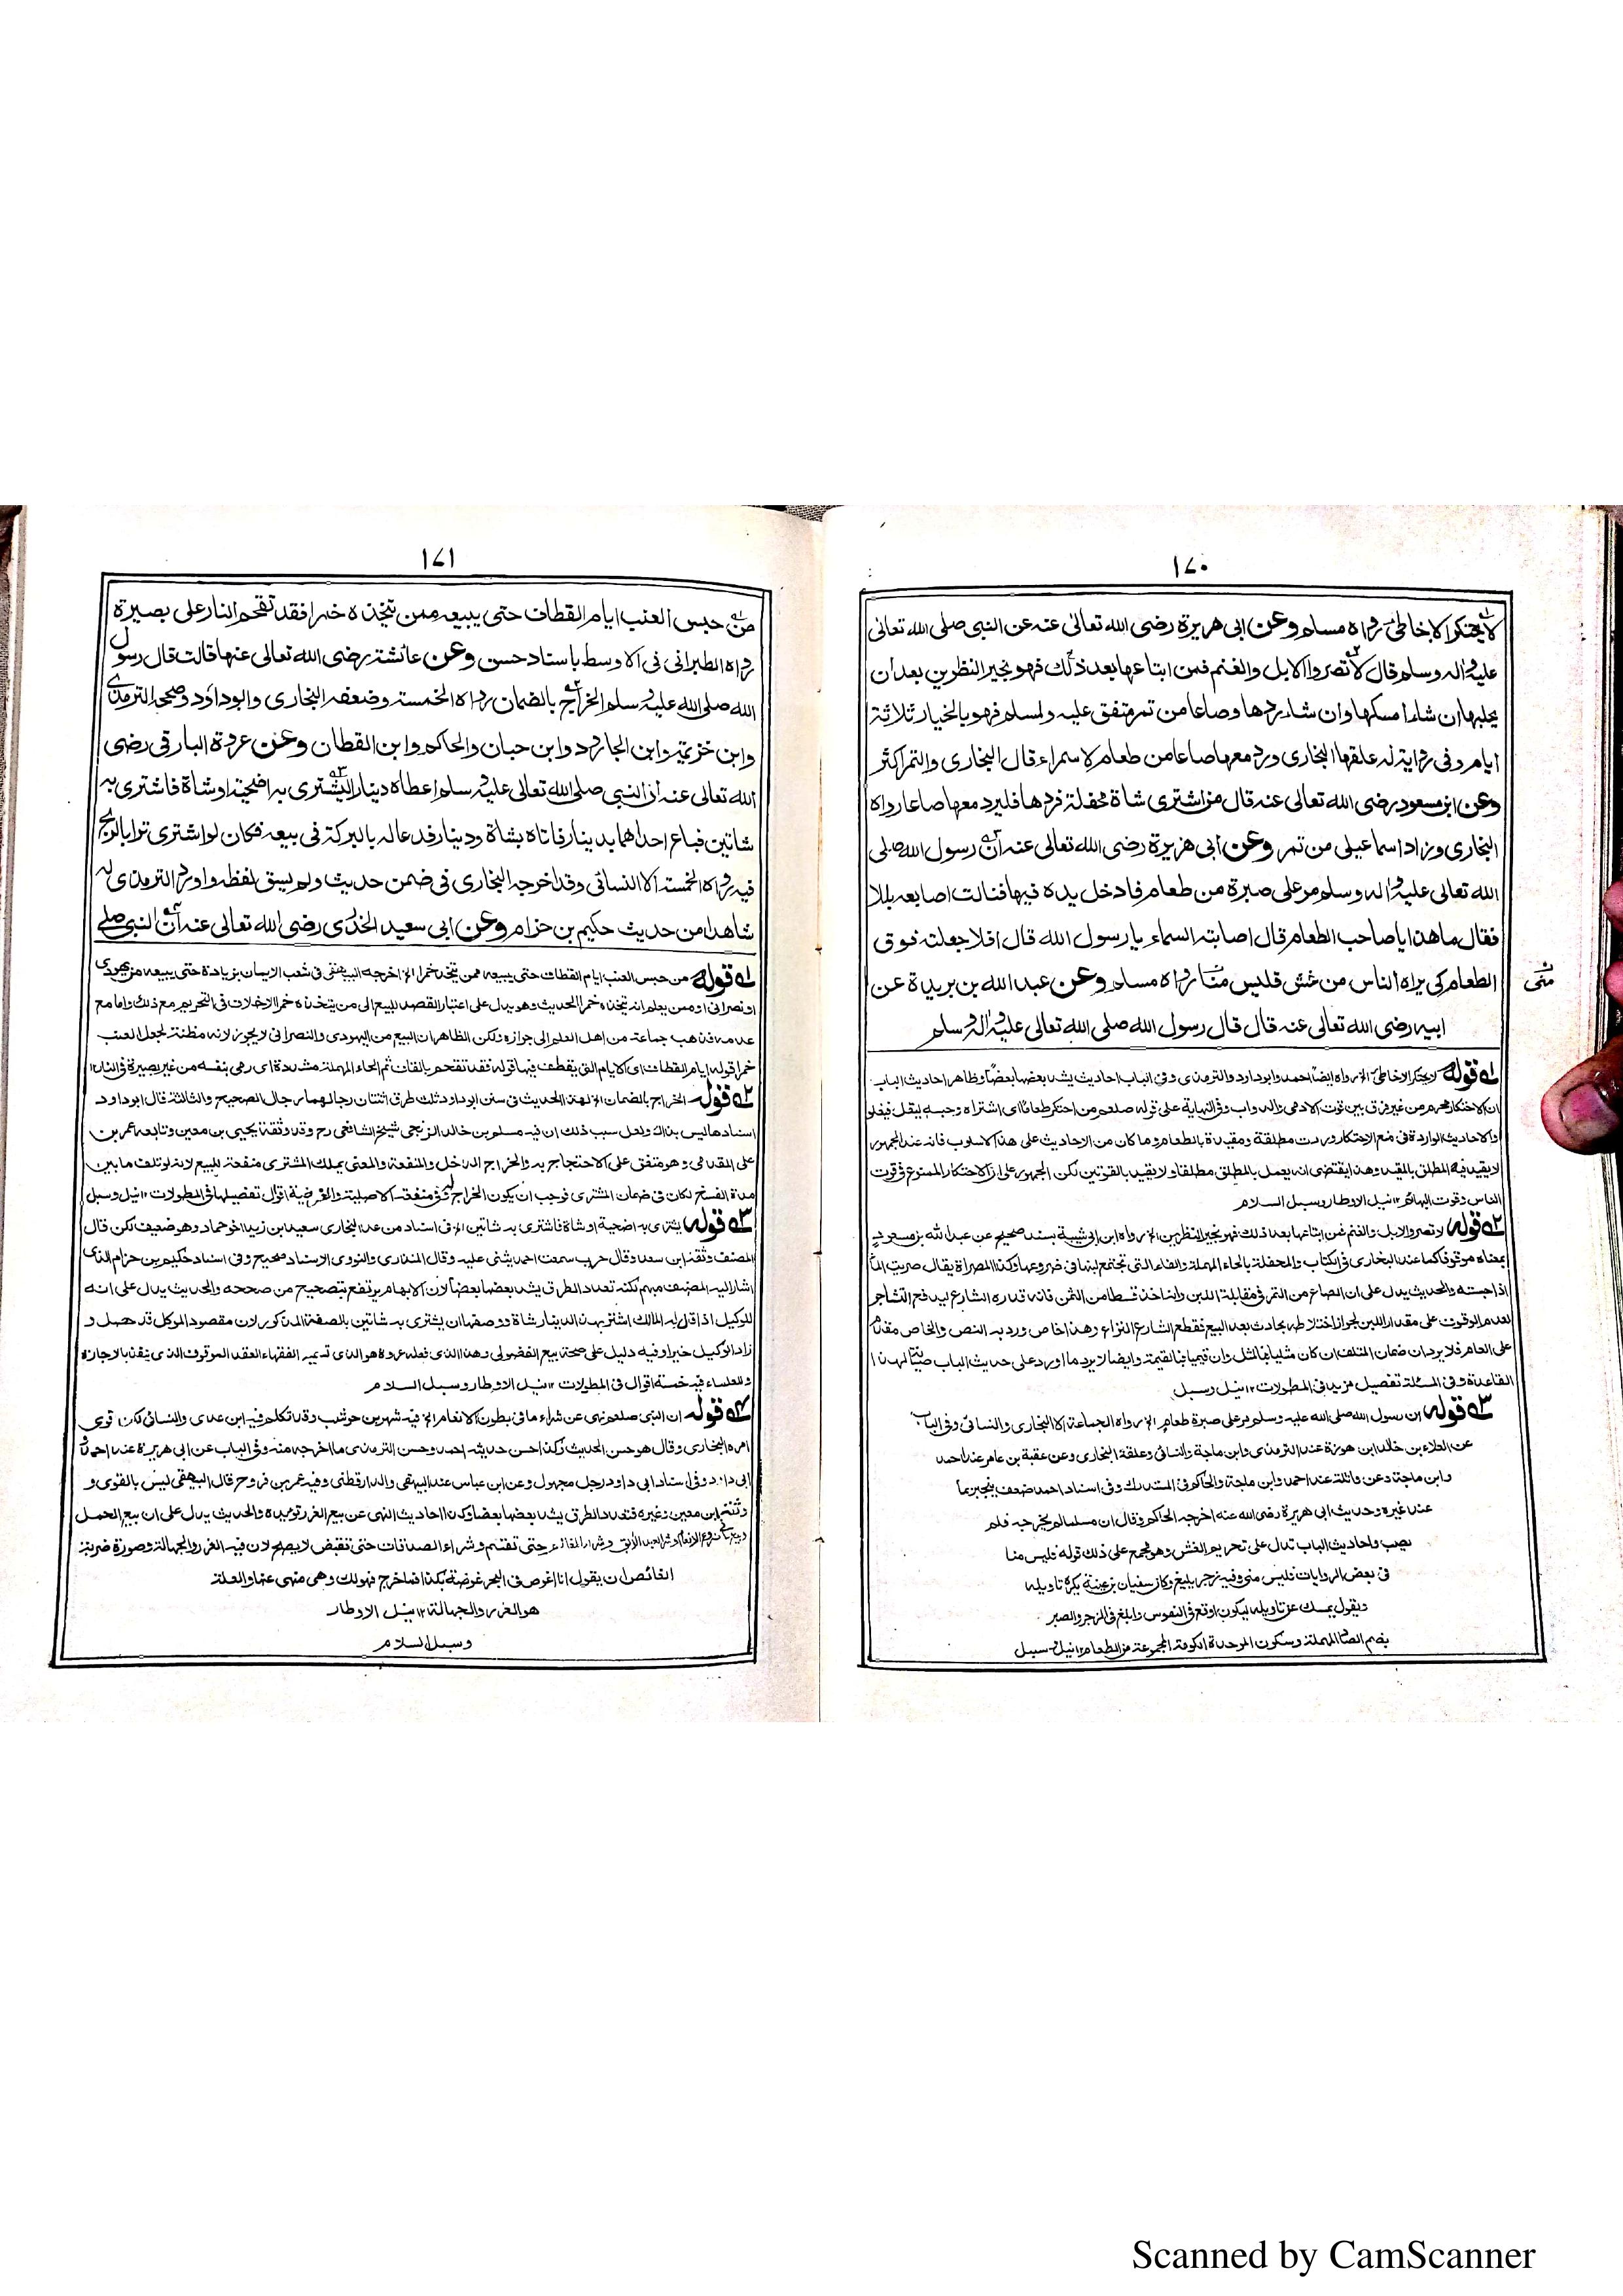 ١٧٠
لا يحتكر الا خاطئ رواه مسلم وعن ابى هريرة رضى الله تعالى عنه عن النبى صلى الله تعالى
عليه واله وسلم قال لا تصروا الابل والغنم فمن ابتاعها بعد ذلك فهو بخير النظرين بعد أن
يحلبها ان شاء امسكها وان شاء ردها وصاعا من تمر متفق عليه ولمسلم فهو بالخيار ثلاثة
ايام وفى رواية له علقها البخارى ورد معها صاعا من طعام لا سمراء قال البخارى والتمر اكثر
وعن ابن مسعود رضى الله تعالى عنه قال من اشترى شاة محفلة فردها فليرد معها صاعا رواه
البخارى وزاد اسماعيلى من تمر وعن ابى هريرة رضى الله تعالى عنه ان رسول الله صلى
الله تعالى عليه واله وسلم مر على صبرة من طعام فادخل يده فيها فنالت اصابعه بللا
فقال ما هذا يا صاحب الطعام قال اصابته السماء يا رسول الله قال افلا جعلته فوق
الطعام كى يراه الناس من غش فليس منا رواه مسلم وعن عبد الله بن بريدة عن
منى
ابيه رضى الله تعالى عنه قال قال رسول الله صلى الله تعالى عليه واله وسلم
١ قوله لا يحتكر الا خاطئ الخ رواه ايضا احمد وابوداود والترمذى وفى الباب احاديث يشد بعضها بعضا وظاهر احاديث الباب
ان الاحتكار محرم من غير فرق بين قوت الادمى والدواب وفى النهاية على قوله صلعم من احتكر طعاما اى اشتراه وحبسه ليقل فيغلو
والاحاديث الواردة فى منع الاحتكار وردت مطلقة ومقيدة بالطعام وما كان من الاحاديث على هذا الاسلوب فانه عند الجمهور
لا يقيد فيه المطلق بالمقيد وهذا يقتضى انه يعمل بالمطلق مطلقا ولا يقيد بالقوتين لكن الجمهور على ان الاحتكار الممنوع فى قوت
الناس وقوت البهائم ١٢ نيل الاوطار وسبل السلام
٢ قوله لا تصروا الابل والغنم فمن ابتاعها بعد ذلك فهو بخير النظرين الخ رواه ابن ابى شيبة بسند صحيح عن عبد الله بن مسعود
بمعناه موقوفا كما عند البخارى فى الكتاب والمحفلة بالحاء المهملة والفاء التى تجتمع لبنها فى ضروعها وكذا المصراة يقال صريت الماء
اذا حبسته والحديث يدل على ان الصاع من التمر فى مقابلة اللبن وانه اخذ قسطا من الثمن فانه قدره الشارع ليدفع التشاجر
لعدم الوقوف على مقدار اللبن لجواز اختلاطه بحادث بعد البيع فقطع الشارع النزاع وهذا خاص ورد به النص والخاص مقدم
على العام فلا يرد ان ضمان المتلف ان كان مثليا فبالمثل وان قيميا فبالقيمة وايضا لا يرد ما اورد على حديث الباب لهذا
القاعدة وفى المسئلة تفصيل مزيد فى المطولات ١٢ نيل وسبل
٣ قوله ان رسول الله صلى الله عليه وسلم مر على صبرة طعام الخ رواه الجماعة الا البخارى والنسائى وفى الباب
عن العلاء بن خالد ابن هوزة عند الترمذى وابن ماجة والنسائى وعلقه البخارى وعن عقبة بن عامر عند احمد
وابن ماجة وعن واثلة عند احمد وابن ماجة والحاكم فى المستدرك وفى اسناد احمد ضعف ينجبر بما
عند غيره وحديث ابى هريرة رضى الله عنه اخرجه الحاكم وقال ان مسلما لم يخرجه فلم
يصب واحاديث الباب تدل على تحريم الغش وهو مجمع على ذلك قوله فليس منا
فى بعض الروايات فليس منى وفيه زجر بليغ وكان سفيان بن عيينة يكره تاويله
ويقول يمسك عن تاويله ليكون اوقع فى النفوس وابلغ فى الزجر والصبر
بضم الصاد المهملة وسكون الموحدة الكومة المجموعة من الطعام ١٢ نيل وسبل
١٧١
من حبس العنب ايام القطاف حتى يبيعه ممن يتخذه خمرا فقد تقحم النار على بصيرة
رواه الطبرانى فى الاوسط باسناد حسن وعن عائشة رضى الله تعالى عنها قالت قال رسول
الله صلى الله عليه وسلم الخراج بالضمان رواه الخمسة وضعفه البخارى وابوداود وصححه الترمذى
وابن خزيمة وابن الجارود وابن حبان والحاكم وابن القطان وعن عروة البارقى رضى
الله تعالى عنه ان النبى صلى الله تعالى عليه وسلم اعطاه دينارا ليشترى به اضحية او شاة فاشترى به
شاتين فباع احداهما بدينار فاتاه بشاة ودينار فدعا له بالبركة فى بيعه فكان لو اشترى ترابا لربح
فيه رواه الخمسة الا النسائى وقد اخرجه البخارى فى ضمن حديث ولم يسق لفظه واورد الترمذى له
شاهدا من حديث حكيم بن حزام وعن ابى سعيد الخدرى رضى الله تعالى عنه ان النبى صلى
١ قوله من حبس العنب ايام القطاف حتى يبيعه ممن يتخذ خمرا الخ اخرجه البيهقى فى شعب الايمان بزيادة حتى يبيعه من يهودى
او نصرانى او ممن يعلم انه يتخذه خمرا الحديث وهو يدل على اعتبار القصد للبيع الى من يتخذه خمرا لاخلاف فى التحريم مع ذلك واما مع
عدمه فذهب جماعة من اهل العلم الى جوازه ولكن الظاهر ان البيع من اليهودى والنصرانى لا يجوز لانه مظنة لجعل العنب
خمرا قوله ايام القطاف اى الايام التى يقطف فيها قوله فقد تقحم بالقاف ثم الحاء المهملة مشددة اى رمى بنفسه من غير بصيرة فى النار ١٢
٢ قوله الخراج بالضمان الخ لهذا الحديث فى سنن ابوداود ثلث طرق اثنتان رجالهما رجال الصحيح والثالثة قال ابوداود
اسنادها ليس بذاك ولعل سبب ذلك ان فيه مسلم بن خالد الزنجى شيخ الشافعى رح وقد وثقه يحيى بن معين وتابعه عمر بن
على المقدمى وهو متفق على الاحتجاج به والخراج الدخل والمنفعة والمعنى يملك المشترى منفعة المبيع لانه لو تلف ما بين
مدة الفسخ لكان فى ضمان المشترى فوجب ان يكون الخراج له منفعته الاصلية والفرعية اقوال تفصيلها فى المطولات ١٢ نيل وسبل
٣ قوله يشترى به اضحية او شاة فاشترى به شاتين الخ فى اسناد من عدا البخارى سعيد بن زيد اخو حماد وهو ضعيف لكن قال
المصنف وثقه ابن سعد وقال حرب سمعت احمد يثنى عليه وقال المنذرى والنووى الاسناد صحيح وفى اسناد حكيم بن حزام الذى
اشار اليه المصنف مبهم لكنه تعدد الطرق يشد بعضها بعضا لان الابهام يرتفع بتصحيح من صححه والحديث يدل على انه
للوكيل اذا قال له المالك اشتر بهذا الدينار شاة ووصفها ان يشترى به شاتين بالصفة المذكورة لان مقصود الموكل قد حصل و
زاد الوكيل خيرا وفيه دليل على صحة بيع الفضولى وهذا الذى فعله عروة هو الذى تسميه الفقهاء العقد الموقوف الذى ينفذ بالاجازة
وللعلماء فيه خمسة اقوال فى المطولات ١٢ نيل الاوطار وسبل السلام
٤ قوله ان النبى صلعم نهى عن شراء ما فى بطون الانعام الخ فيه شهر بن حوشب وقد تكلم فيه ابن عدى والنسائى لكن قوى
امره البخارى وقال هو حسن الحديث وكذا حسن حديثه احمد وحسن الترمذى ما اخرجه منه وفى الباب عن ابى هريرة عند احمد
ابى داود وفى اسناد ابى داود رجل مجهول وعن ابن عباس عند البيهقى والدارقطنى وفيه عمر بن فروخ قال البيهقى ليس بالقوى و
وثقه ابن معين وغيره فتعدد الطرق يشد بعضها بعضا وكذا احاديث النهى عن بيع الغرر تؤيده والحديث يدل على ان بيع الحمل
حتى تقسم وشراء الصدقات حتى تقبض لا يصح لان فيه الغرر والجهالة وصورة ضربة
الغائص ان يقول انا اغوص فى البحر غوصة بكذا فما اخرج فهو لك وهى منهى عنها والعلة
هو الغرر والجهالة ١٢ نيل الاوطار
وسبل السلام
Scanned by CamScanner